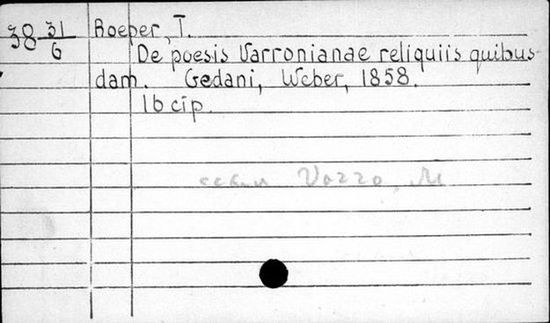 38 31/6 Roeper, T.
De poesis Varronianae reliquiis quibus
dam. Gedani, Weber, 1858.
16 стр.
Varro, M